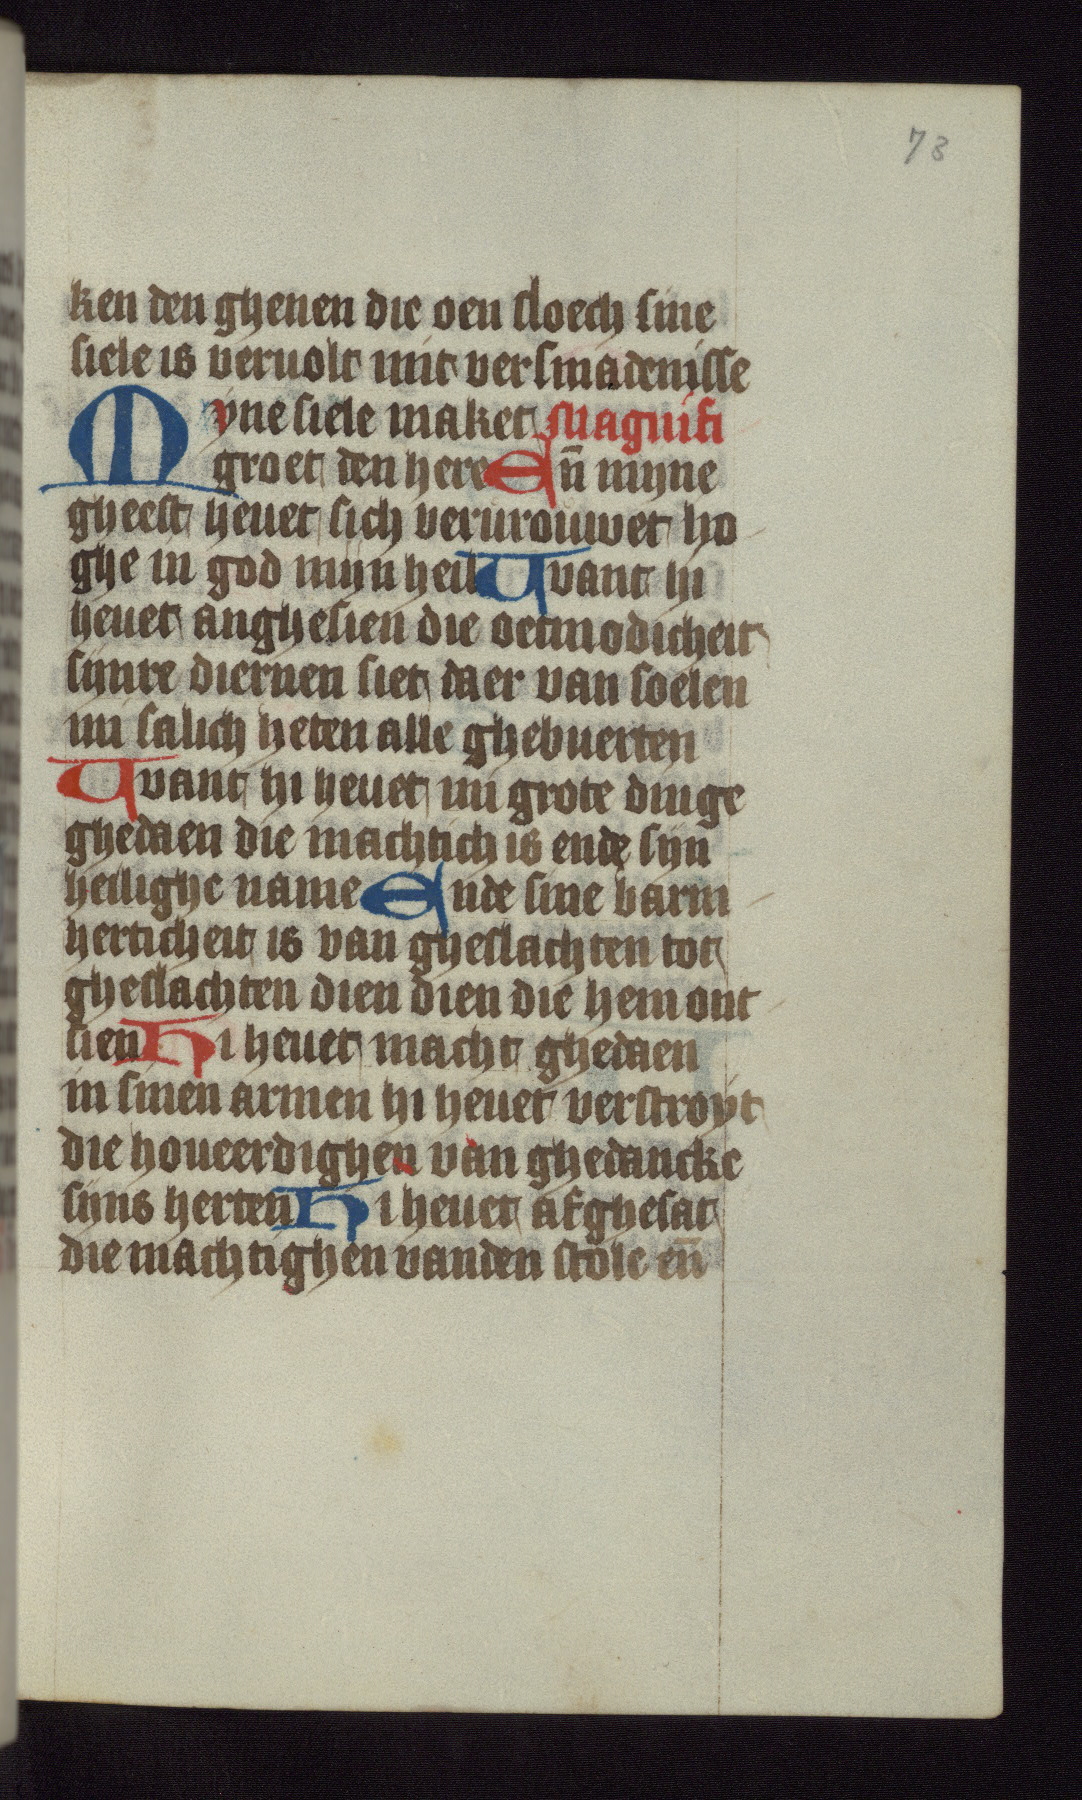 73
ken den ghenen die oen sloech sine
siele is veruolt mit versmadenisse
Myne siele maket Magnifi
groet den here En̄ myne
gheest heuet sich verurouwet ho
ghe in god mijn heil Want hi
heuet anghesien die oetmodicheit
sijnre diernen siet daer van soelen
mi salich heten alle ghebuerten
Want hi heuet mi grote dinge
ghedaen die machtich is ende sijn
heilighe name Ende sine barm
herticheit is van gheslachten tot
gheslachten dien dien die hem ont
sien Hi heuet macht ghedaen
in sinen armen hi heuet verstroyt
die houeerdighen van ghedancke
sijns herten Hi heuet afghesat
die machtighen vanden stole en̄